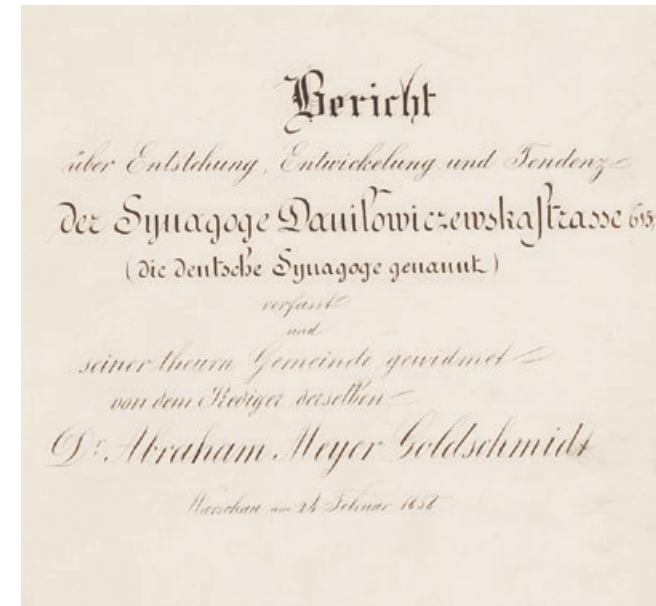 Bericht
über Entstehung, Entwickelung und Tendenz
der Synagoge Daniłowiczewskastrasse 615,
(die deutsche Synagoge genannt)
verfasst
und
seiner theuern Gemeinde gewidmet
von dem Prediger derselben
Dr. Abraham Meyer Goldschmidt
Warschau am 24 Februar 1858